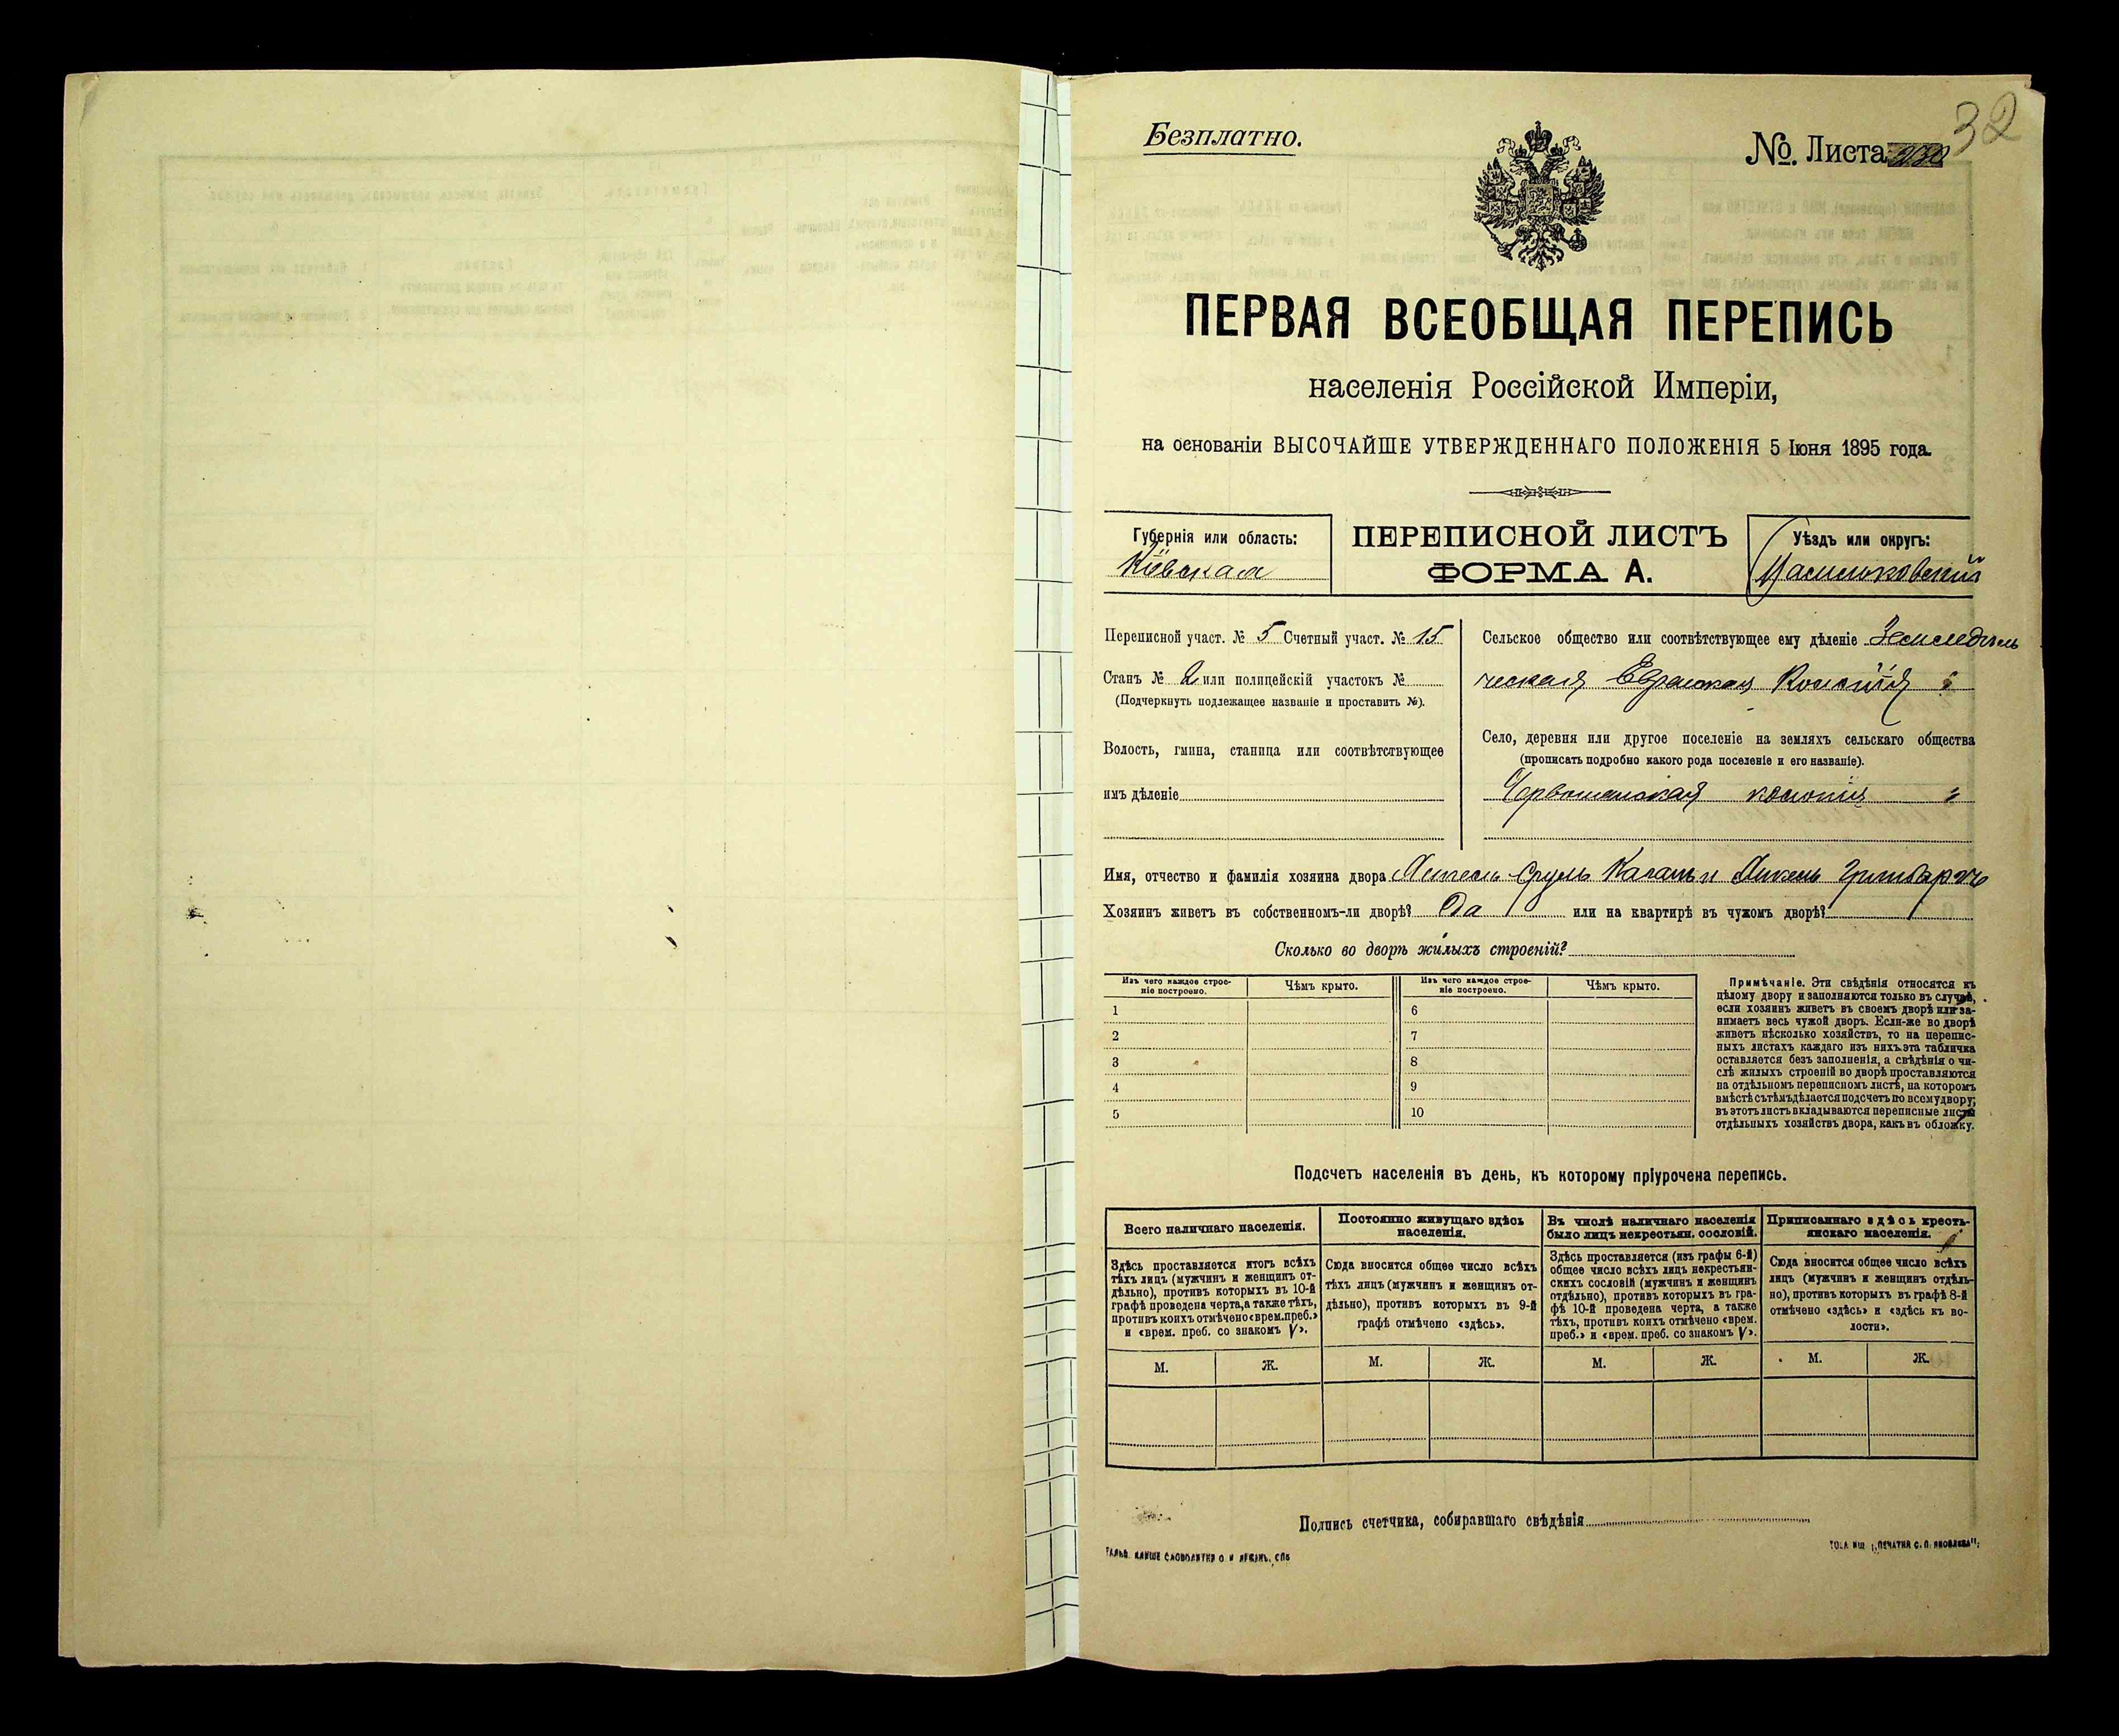 32
Безплатно.
№. Листа
ПЕРВАЯ ВСЕОБЩАЯ ПЕРЕПИСЬ
населенія Россійской Имперіи,
на основаніи ВЫСОЧАЙШЕ УТВЕРЖДЕННАГО ПОЛОЖЕНІЯ 5 Іюня 1895 года.
Губернія или область:
Кіевская
ПЕРЕПИСНОЙ ЛИСТЪ
ФОРМА А.
Уѣздъ или округъ:
Васильковскій
Переписной участ. № 5 Счетный участ. № 15
Станъ № 2 или полицейскій участокъ №
(Подчеркнуть подлежащее названіе и проставить №).
Волость, гмина, станица или соотвѣтствующее
имъ дѣленіе
Сельское общество или соотвѣтствующее ему дѣленіе Земледѣль
ческая Еврейская Колонія
Село, деревня или другое поселеніе на земляхъ сельскаго общества
(прописать подробно какого рода поселеніе и его названіе).
колонія
Имя, отчество и фамилія хозяина двора Сруль Каганъ и
Хозяинъ живетъ въ собственномъ-ли дворѣ? Да или на квартирѣ въ чужомъ дворѣ?
Сколько во дворѣ жилыхъ строеній?
Изъ чего каждое строе-
ніе построено.
Чѣмъ крыто.
Изъ чего каждое строе-
ніе построено.
Чѣмъ крыто.
1 6
2 7
3 8
4 9
5 10
Примѣчаніе. Эти свѣдѣнія относятся къ
цѣлому двору и заполняются только въ случаѣ,
если хозяинъ живетъ въ своемъ дворѣ или за-
нимаетъ весь чужой дворъ. Если-же во дворѣ
живетъ нѣсколько хозяйствъ, то на перепис-
ныхъ листахъ каждаго изъ нихъ эта табличка
оставляется безъ заполненія, а свѣдѣнія о чи-
слѣ жилыхъ строеній во дворѣ проставляются
на отдѣльномъ переписномъ листѣ, на которомъ
вмѣстѣ съ тѣмъ дѣлается подсчетъ по всему двору;
въ этотъ листъ вкладываются переписные листы
отдѣльныхъ хозяйствъ двора, какъ въ обложку.
Подсчетъ населенія въ день, къ которому пріурочена перепись.
Всего наличнаго населенія.
Здѣсь проставляется итогъ всѣхъ
тѣхъ лицъ (мужчинъ и женщинъ от-
дѣльно), противъ которыхъ въ 10-й
графѣ проведена черта, а также тѣхъ,
противъ коихъ отмѣчено «врем. преб.»
и «врем. преб. со знакомъ V».
Постоянно живущаго здѣсь
населенія.
Сюда вносится общее число всѣхъ
тѣхъ лицъ (мужчинъ и женщинъ от-
дѣльно), противъ которыхъ въ 9-й
графѣ отмѣчено «здѣсь».
Въ числѣ наличнаго населенія
было лицъ некрестьян. сословій.
Здѣсь проставляется (изъ графы 6-й)
общее число всѣхъ лицъ некрестьян-
скихъ сословій (мужчинъ и женщинъ
отдѣльно), противъ которыхъ въ гра-
фѣ 10-й проведена черта, а также
тѣхъ, противъ коихъ отмѣчено «врем.
преб.» и «врем. преб. со знакомъ V».
Приписаннаго здѣсь кресть-
янскаго населенія.
Сюда вносится общее число всѣхъ
лицъ (мужчинъ и женщинъ отдѣль-
но), противъ которыхъ въ графѣ 8-й
отмѣчено «здѣсь» и «здѣсь къ во-
лости».
М. Ж. М. Ж. М. Ж. М. Ж.
Подпись счетчика, собиравшаго свѣдѣнія